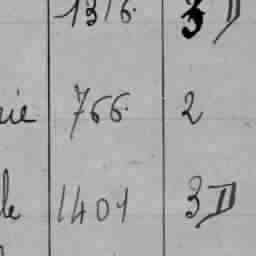 1316. 3 D
rie 766. 2
le 1401 3 D